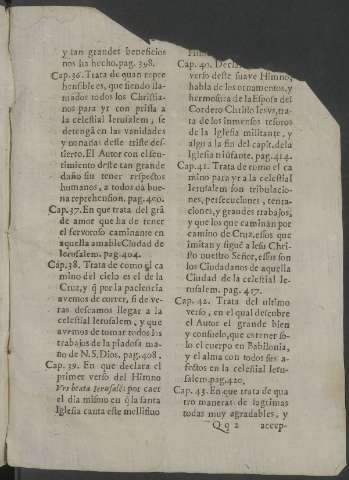 y tan grandes beneficios
nos ha hecho. pag. 398.
Cap. 36. Trata de quan repre
hensibles es, que siendo lla-
mados todos los Christia-
nos para yr con prissa a
la celestial Ierusalem, se
detengã en las vanidades
y mañas deste triste des-
tierro. El Autor con el sen-
timiento deste tan grande
daño sin tener respectos
humanos, a todos dà bue-
na reprehension. pag. 400.
Cap. 37. En que trata del grã
de amor que ha de tener
el fervoroso caminante en
aquella amable Ciudad de
Ierusalem. pag. 404.
Cap. 38. Trata de como el ca
mino del cielo es el de la
Cruz, y q̃ por la paciencia
avemos de correr, si de ve-
ras deseamos llegar a la
celestial Ierusalem, y que
avemos de tomar todos los
trabajos de la piadosa ma-
no de N. S. Dios. pag. 408.
Cap. 39. En que declara el
primer verso del Himno
Vrbs beata Ierusalẽ: por caer
el dia mismo en q̃ la santa
Iglesia canta este mellifluo
Himn
Cap. 40. Declar
verso deste suave Himno,
habla de los ornamentos, y
hermosura de la Esposa del
Cordero Christo Iesvs, tra-
ta de los inmensos tesoros
de la Iglesia militante, y
algo a la fin del capit. de la
Iglesia triũfante. pag. 414.
Cap. 41. Trata de como el ca
mino para yr a la celestial
Ierusalem son tribulacio-
nes, persecuciones, tenta-
ciones, y grandes trabajos,
y que los que caminan por
camino de Cruz, essos que
imitan y siguẽ a Iesu Chri-
sto nuestro Señor, essos son
los Ciudadanos de aquella
Ciudad de la celestial Ie-
rusalem. pag. 417.
Cap. 42. Trata del ultimo
verso, en el qual descubre
el Autor el grande bien
y consuelo, que es tener so-
lo el cuerpo en Babilonia,
y el alma con todos sus a-
fectos en la celestial Ieru-
salem. pag. 420.
Cap. 43. En que trata de qua
tro maneras de lagrimas
todas muy agradables, y
Qq 2 accep-